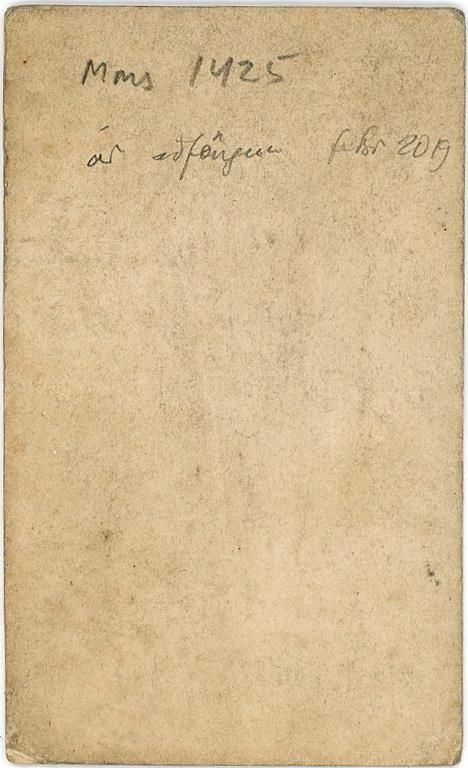 Mms 1425
úr aðföngum febr 2019